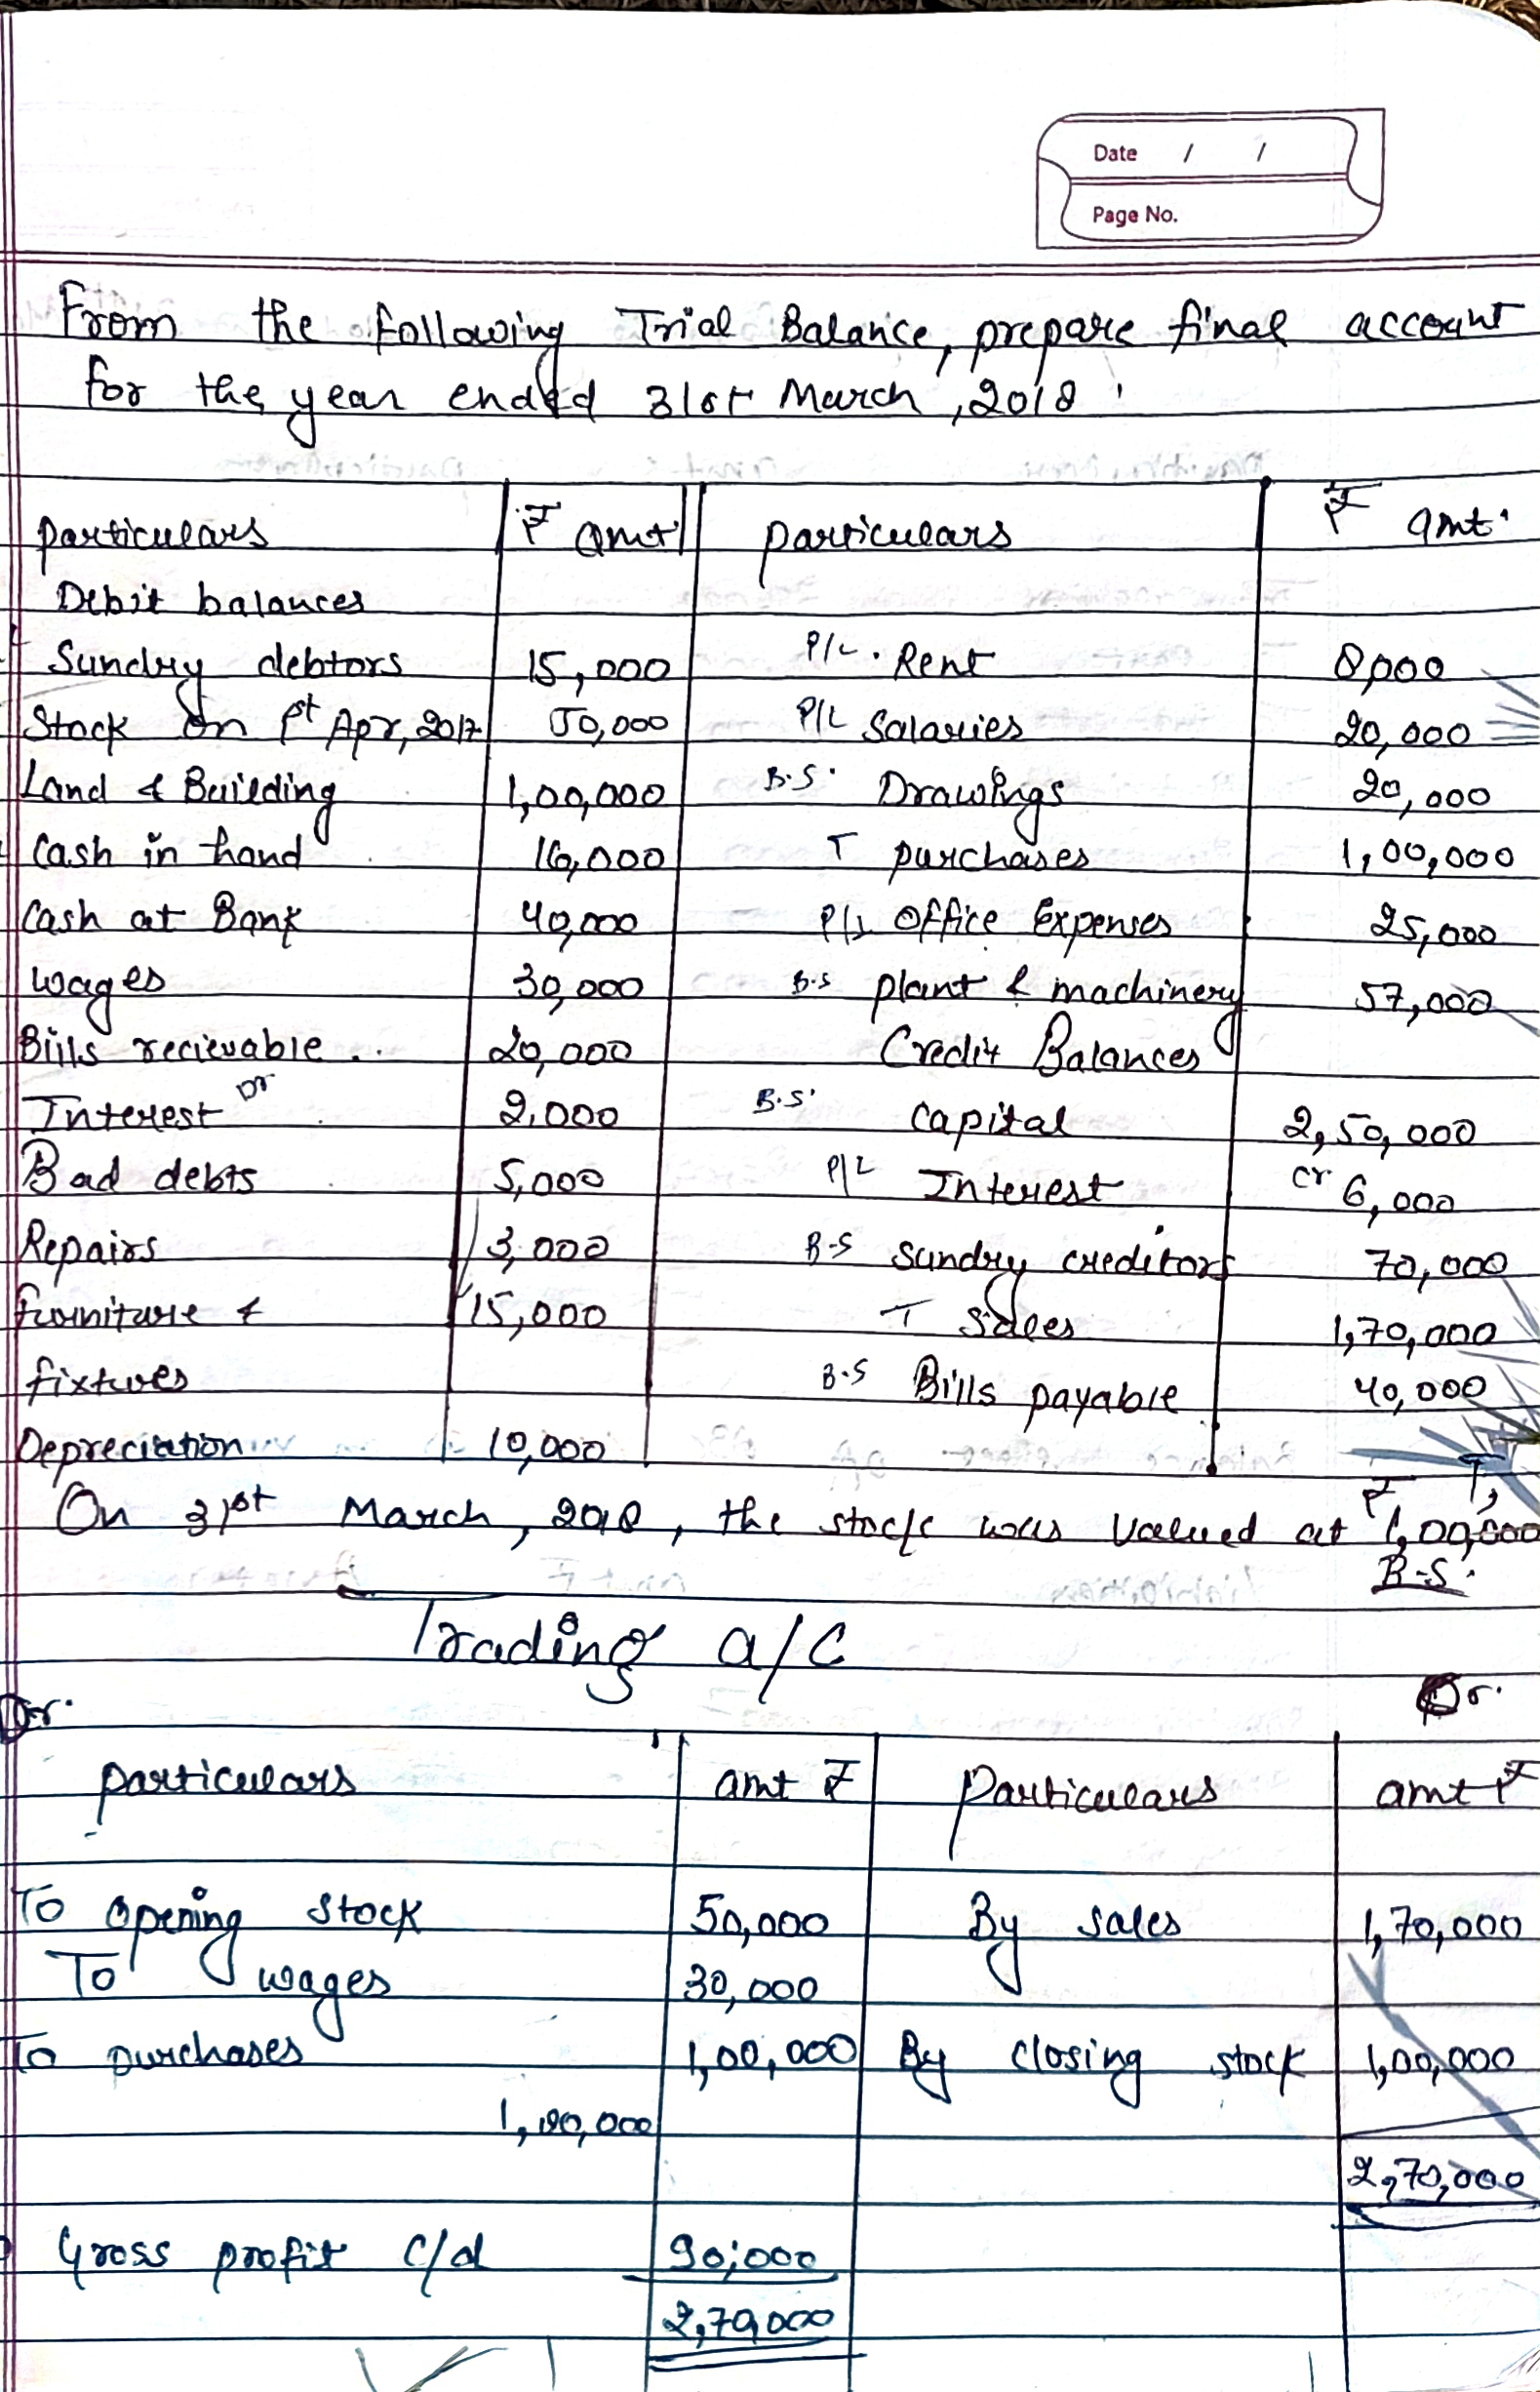 Date / /
Page No.
From the following Trial Balance, prepare final account
for the year ended 31st March, 2018 :
particulars ₹ amt particulars ₹ amt.
Debit balances
Sundry debtors 15,000 P/L. Rent 8,000
Stock on 1st Apr, 2017 50,000 P/L Salaries 20,000
Land & Building 1,00,000 B.S. Drawings 20,000
Cash in hand 16,000 T purchases 1,00,000
Cash at Bank 40,000 P/L Office Expenses 25,000
wages 30,000 B.S plant & machinery 57,000
Bills recievable .. 20,000 Credit Balances
Interest Dr 2,000 B.S. capital 2,50,000
Bad debts 5,000 P/L Interest cr 6,000
Repairs 3,000 B-S sundry creditors 70,000
furniture & 15,000 T sales 1,70,000
fixtures B.S Bills payable 40,000
Depreciation 10,000
On 31st March, 2018, the stock was valued at ₹ 1,00,000 T,
B-S.
Trading a/c
Dr. Dr.
particulars amt ₹ Particulars amt ₹
To opening stock 50,000 By sales 1,70,000
To wages 30,000
To purchases 1,00,000 By closing stock 1,00,000
1,80,000
2,70,000
Gross profit c/d 90,000
2,70,000